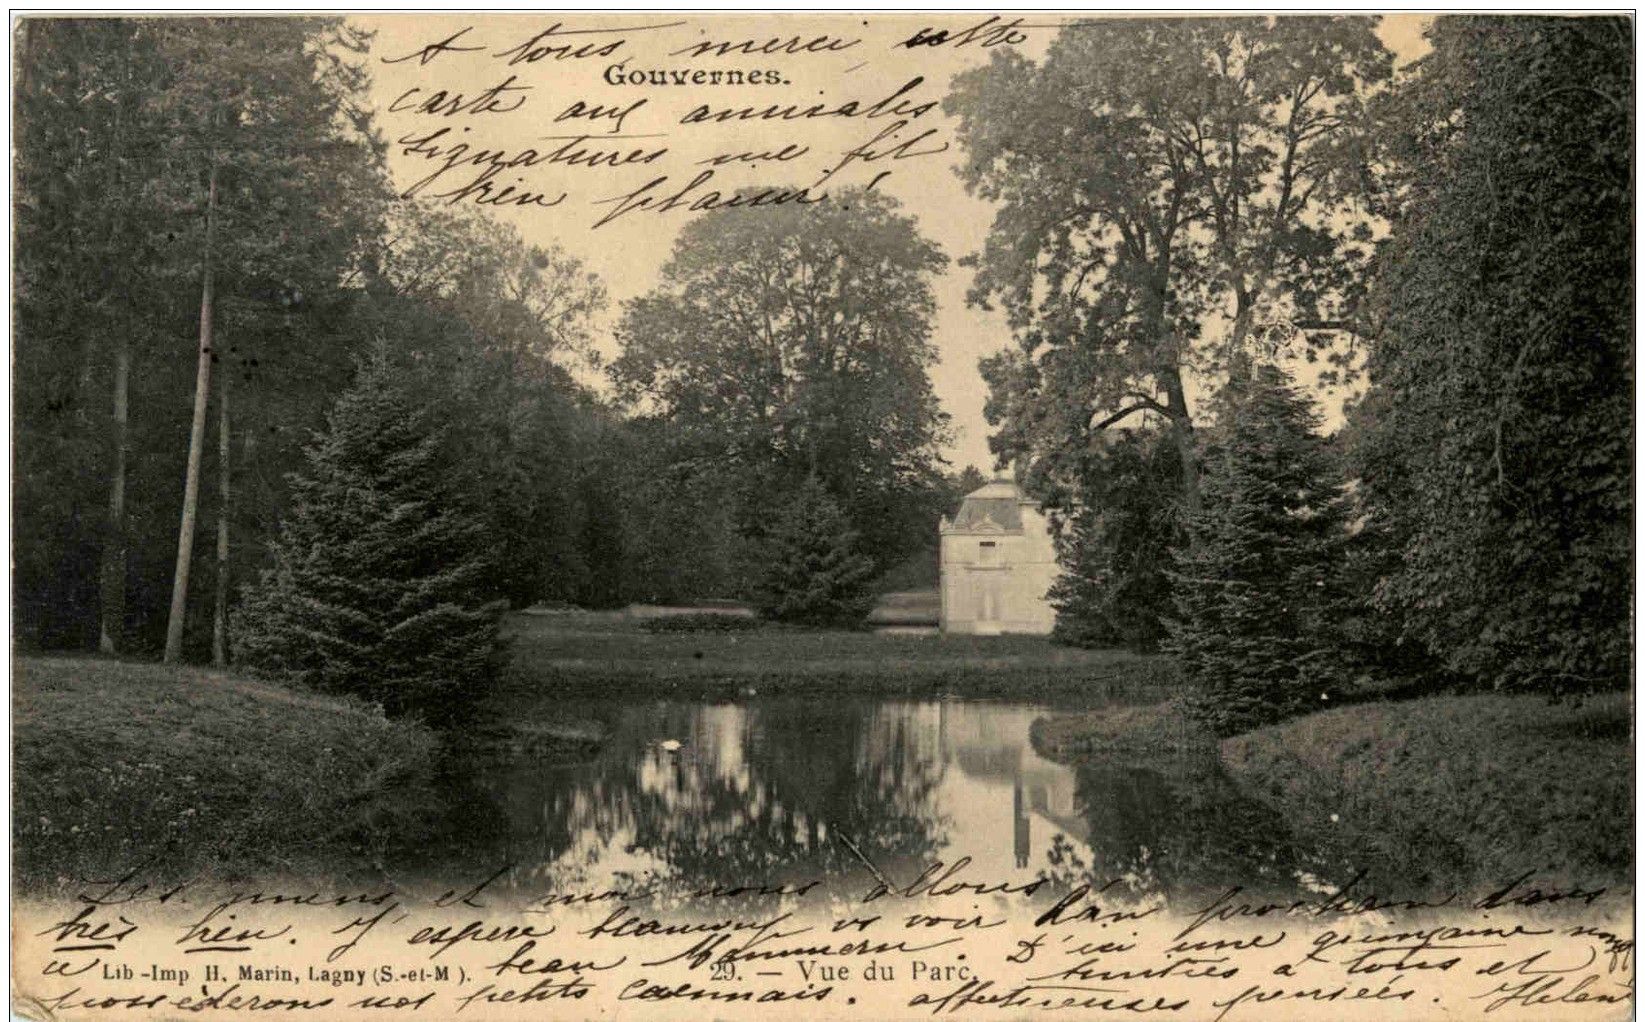 A tous merci, cette
Gouvernes.
carte aux amicales
signatures me fit
bien plaisir !
Les miens et moi nous allons
très bien. J'espère beaucoup vs voir l'an prochain dans
ce beau . D'ici une quinzaine nous
Lib-Imp H. Marin, Lagny (S.-et-M).
29. — Vue du Parc.
possèderons nos petits caennais. Amitiés à tous et
affectueuses pensées.